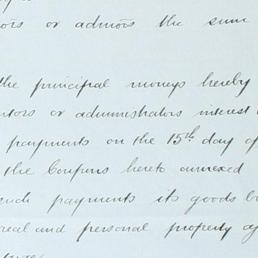 or admors the sum
the principal moneys hereby
or administrators interest
payments on the 15th day of
the Coupons hereto annexed
such payments its goods
real and personal property